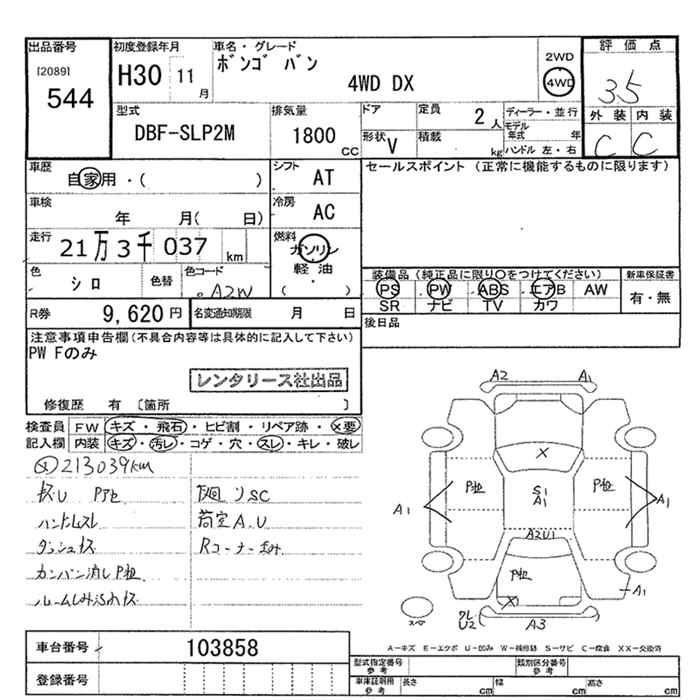 出品番号 初度登録年月 車名・グレード 2WD 評価点
[2089] H30 11月 ボンゴ バン 4WD 35
544 4WD DX
型式 排気量 ドア 定員 2人 ディーラー・並行 外装 内装
DBF-SLP2M 1800CC 形状 V 積載 kg モデル年式 年 C C
ハンドル 左・右
車歴 シフト セールスポイント (正常に機能するものに限ります)
自家用・( ) AT
車検 冷房
年 月( 日) AC
走行 燃料
21万3千037km ガソリン
軽油
( ・ )
色 色替 色コード 装備品 (純正品に限り〇をつけてください) 新車保証書
シロ A2W PS PW ABS エアB AW 有・無
SR ナビ TV カワ
R券 9,620円 名変通知期限 月 日 後日品
注意事項申告欄(不具合内容等は具体的に記入して下さい)
PW Fのみ
レンタリース社出品
修復歴 有 〔箇所 〕
検査員 FW キズ・飛石・ヒビ割・リペア跡・X要
記入欄 内装 キズ・汚レ・コゲ・穴・スレ・キレ・破レ
213039km
ハンドルスレ
荷室A.U
ダッシュキズ Rコーナー凹み
カンバン消しP跡
A2 A1
X
P跡 S1 A1 P跡
A1 A1
A2U1
P跡
X A1
スペア U2 A3
A-キズ E-エクボ U-凹み W-補修跡 S-サビ C-腐食 XX-交換済
車台番号 103858
登録番号
型式指定番号 参考 類別区分番号 参考
車庫証明用 参考 長さ cm 幅 cm 高さ cm